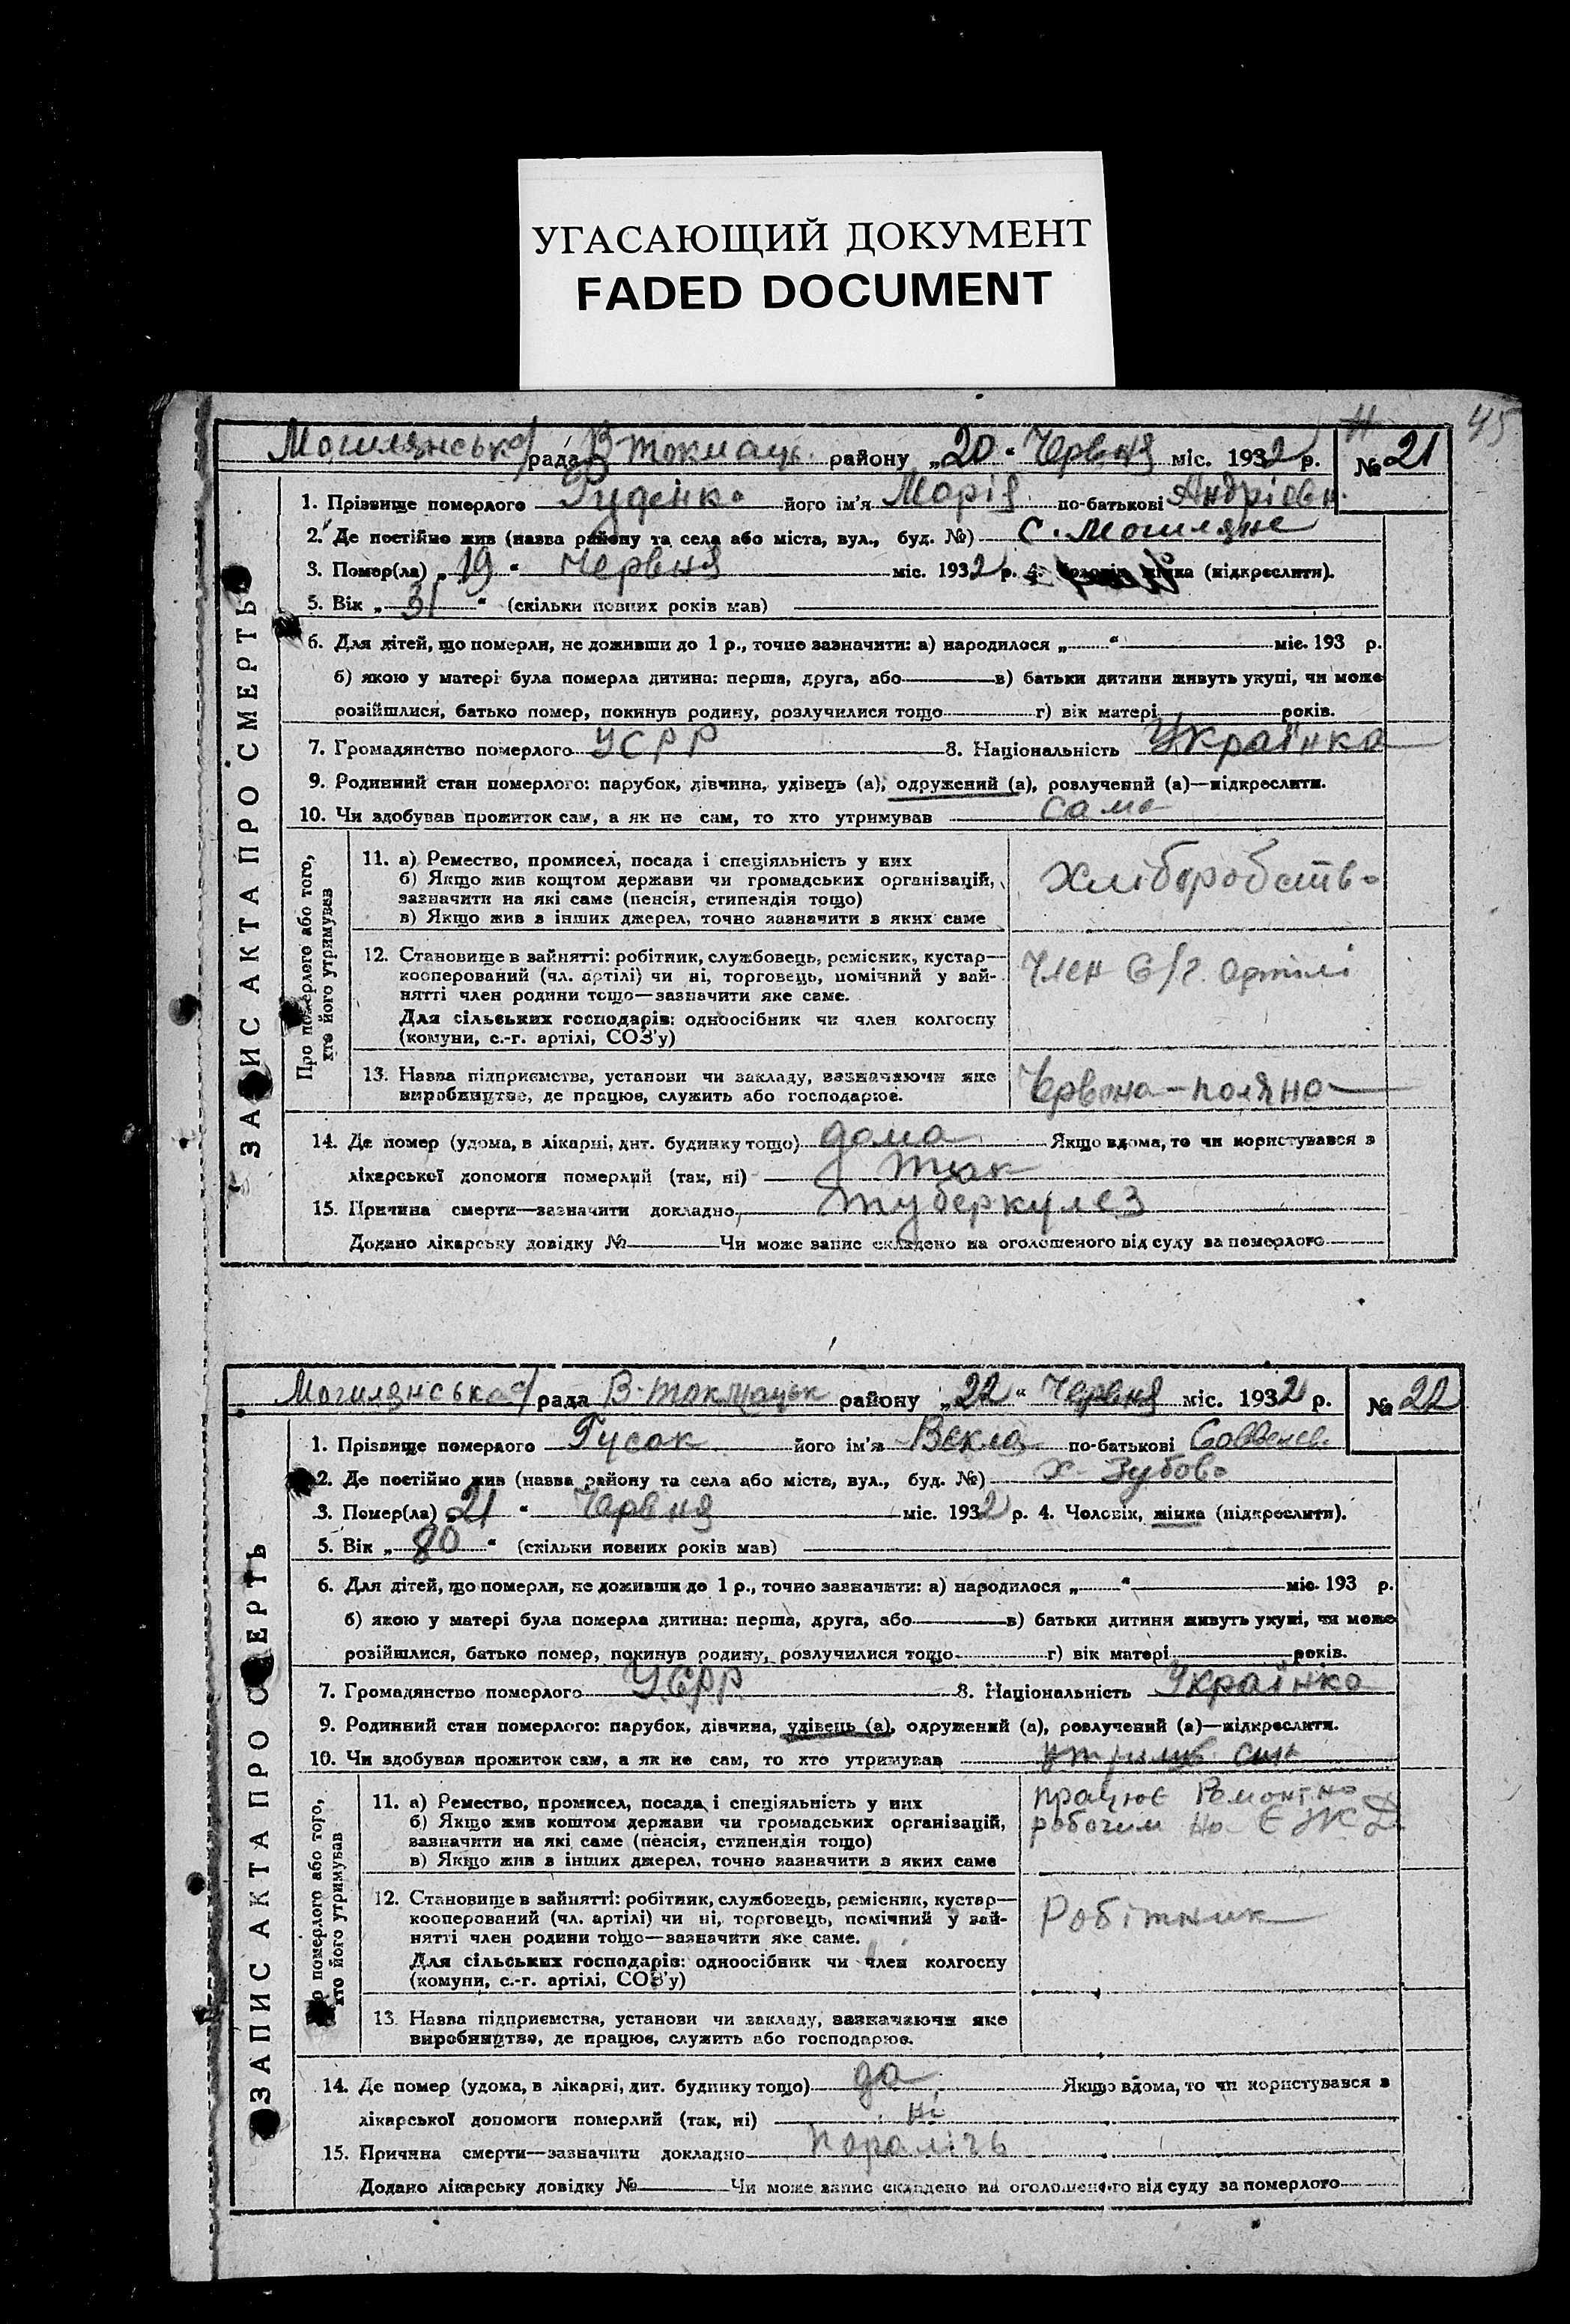 УГАСАЮЩИЙ ДОКУМЕНТ
FADED DOCUMENT
45
Могилянська рада В-Токмаць. району „20“ Червня міс. 1932 р. № 21
1. Прізвище померлого Руденко його ім'я Марія по-батькові Андріовн.
2. Де постійно жив (назва району та села або міста, вул., буд. №) С. Могиляне
3. Помер(ла) „19“ Червня міс. 1932 р. 4. жінка (підкреслити).
5. Вік „31“ (скільки повних років мав)
6. Для дітей, що померли, не доживши до 1 р., точно зазначити: а) народилося „ “ міс. 193 р.
б) якою у матері була померла дитина: перша, друга, або в) батьки дитини живуть укупі, чи може
розійшлися, батько помер, покинув родину, розлучилися тощо г) вік матері років.
7. Громадянство померлого УСРР 8. Національність Українка
9. Родинний стан померлого: парубок, дівчина, удівець (а), одружений (а), розлучений (а)—підкреслити.
10. Чи здобував прожиток сам, а як не сам, то хто утримував сама
ЗАПИС АКТА ПРО СМЕРТЬ
Про померлого або того,
хто його утримував
11. а) Ремество, промисел, посада і спеціяльність у них
б) Якщо жив коштом держави чи громадських організацій,
зазначити на які саме (пенсія, стипендія тощо)
в) Якщо жив з інших джерел, точно зазначити з яких саме
Хліборобство
12. Становище в зайнятті: робітник, службовець, ремісник, кустар—
кооперований (чл. артілі) чи ні, торговець, помічний у зай-
нятті член родини тощо—зазначити яке саме.
Для сільських господарів: одноосібник чи член колгоспу
(комуни, с.-г. артілі, СОЗ'у)
Член С/г. артілі
13. Назва підприємства, установи чи закладу, зазначаючи яке
виробництво, де працює, служить або господарює.
Червона-поляна
14. Де помер (удома, в лікарні, дит. будинку тощо) дома Якщо вдома, то чи користувався з
лікарської допомоги померлий (так, ні) так
15. Причина смерти—зазначити докладно туберкулез
Додано лікарську довідку № Чи може запис складено на оголошеного від суду за померлого
Могилянська рада В-Токмацьк району „22“ Червня міс. 1932 р. № 22
1. Прізвище померлого Гусак його ім'я Векла по-батькові
2. Де постійно жив (назва району та села або міста, вул., буд. №) х. Зубово
3. Помер(ла) „21“ Червня міс. 1932 р. 4. Чоловік, жінка (підкреслити).
5. Вік „80“ (скільки повних років мав)
6. Для дітей, що померли, не доживши до 1 р., точно зазначити: а) народилося „ “ міс. 193 р.
б) якою у матері була померла дитина: перша, друга, або в) батьки дитини живуть укупі, чи може
розійшлися, батько помер, покинув родину, розлучилися тощо г) вік матері років.
7. Громадянство померлого УСРР 8. Національність Українка
9. Родинний стан померлого: парубок, дівчина, удівець (а), одружений (а), розлучений (а)—підкреслити.
10. Чи здобував прожиток сам, а як не сам, то хто утримував утримув. син
ЗАПИС АКТА ПРО СМЕРТЬ
Про померлого або того,
хто його утримував
11. а) Ремество, промисел, посада і спеціяльність у них
б) Якщо жив коштом держави чи громадських організацій,
зазначити на які саме (пенсія, стипендія тощо)
в) Якщо жив з інших джерел, точно зазначити з яких саме
працює Ремонтно
робочим на Є Ж Д
12. Становище в зайнятті: робітник, службовець, ремісник, кустар—
кооперований (чл. артілі) чи ні, торговець, помічний у зай-
нятті член родини тощо—зазначити яке саме.
Для сільських господарів: одноосібник чи член колгоспу
(комуни, с.-г. артілі, СОЗ'у)
Робітник
13. Назва підприємства, установи чи закладу, зазначаючи яке
виробництво, де працює, служить або господарює.
14. Де помер (удома, в лікарні, дит. будинку тощо) да Якщо вдома, то чи користувався з
лікарської допомоги померлий (так, ні) ні
15. Причина смерти—зазначити докладно паралічь
Додано лікарську довідку № Чи може запис складено на оголошеного від суду за померлого